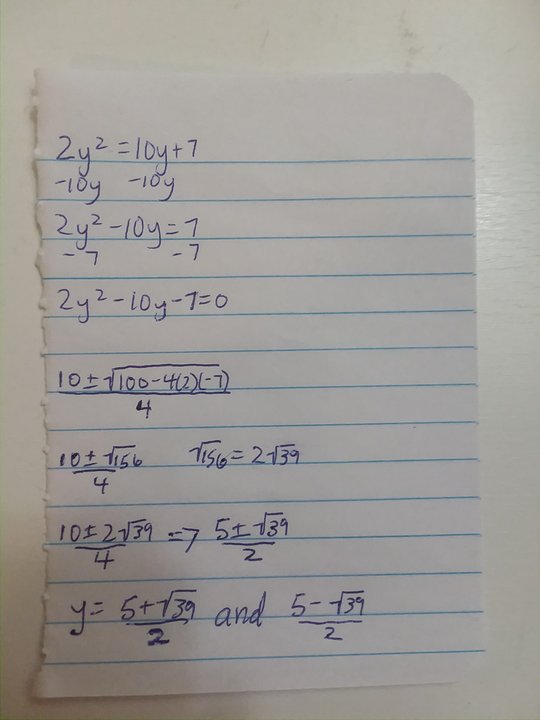 2y² = 10y + 7
-10y -10y
2y² - 10y = 7
- 7 - 7
2y² - 10y - 7 = 0
10 ± √(100 - 4(2)(-7)) / 4
10 ± √156 / 4 √156 = 2√39
10 ± 2√39 / 4 => 5 ± √39 / 2
y = 5 + √39 / 2 and 5 - √39 / 2